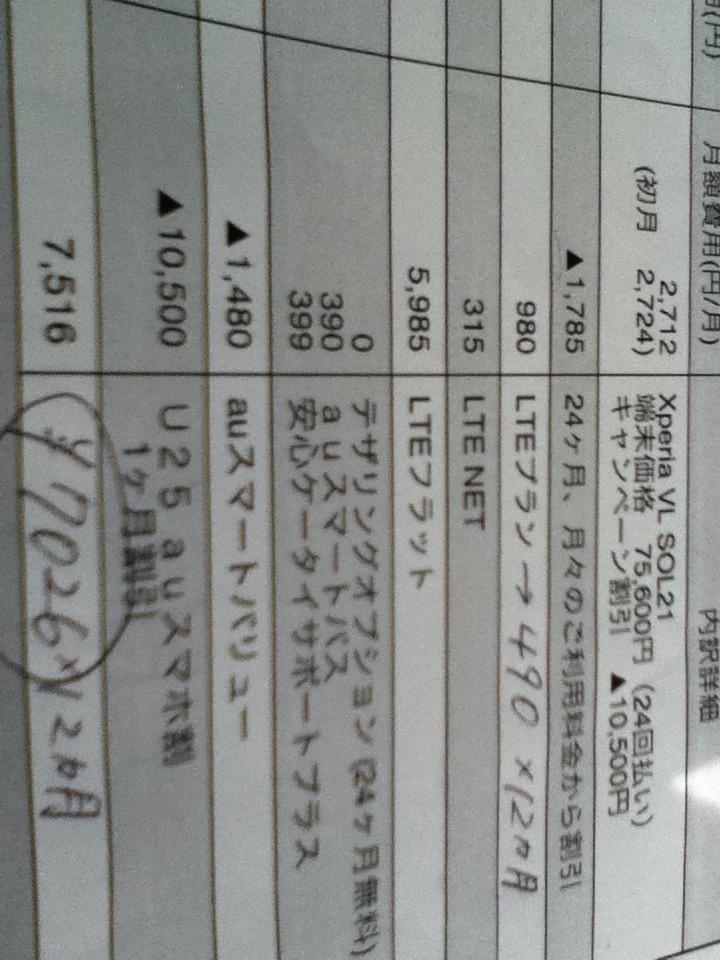 (円)
月額費用(円/月)
内訳詳細
2,712
Xperia VL SOL21
(初月 2,724)
端末価格 75,600円 (24回払い)
キャンペーン割引 ▲10,500円
▲1,785
24ヶ月、月々のご利用料金から割引
980
LTEプラン → 490 ×12ヵ月
315
LTE NET
5,985
LTEフラット
0
テザリングオプション(24ヶ月無料)
390
auスマートパス
399
安心ケータイサポートプラス
▲1,480
auスマートバリュー
▲10,500
U25 auスマホ割
1ヶ月割引
7,516
¥7026×12ヵ月